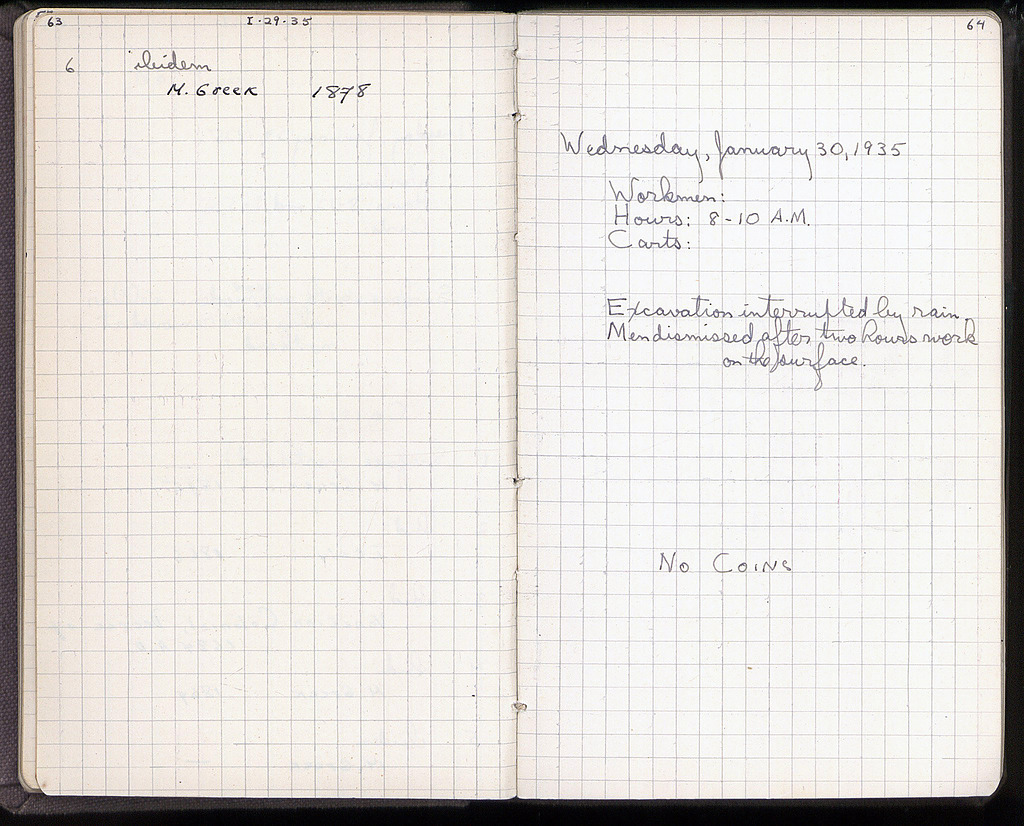 63 I-29-35
6 ibidem
M. Greek 1878
64
Wednesday, January 30, 1935
Workmen:
Hours: 8-10 A.M.
Carts:
Excavation interrupted by rain.
Men dismissed after two hours work
on the surface.
No Coins